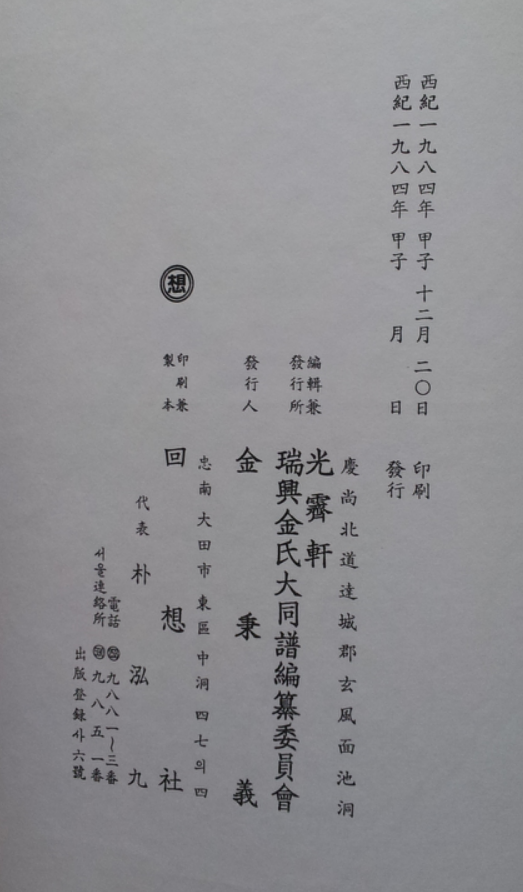 西紀一九八四年 甲子 十二月 二〇日 印刷
西紀一九八四年 甲子 月 日 發行
慶尚北道達城郡玄風面池洞
編輯兼
發行所
光霽軒
瑞興金氏大同譜編纂委員會
發行人 金秉義
忠南大田市東區中洞四七의四
想
印刷兼
製本
回想社
代表 朴泓九
電話 九八八一~三番
서울連絡所 九八五一番
出版登錄사六號